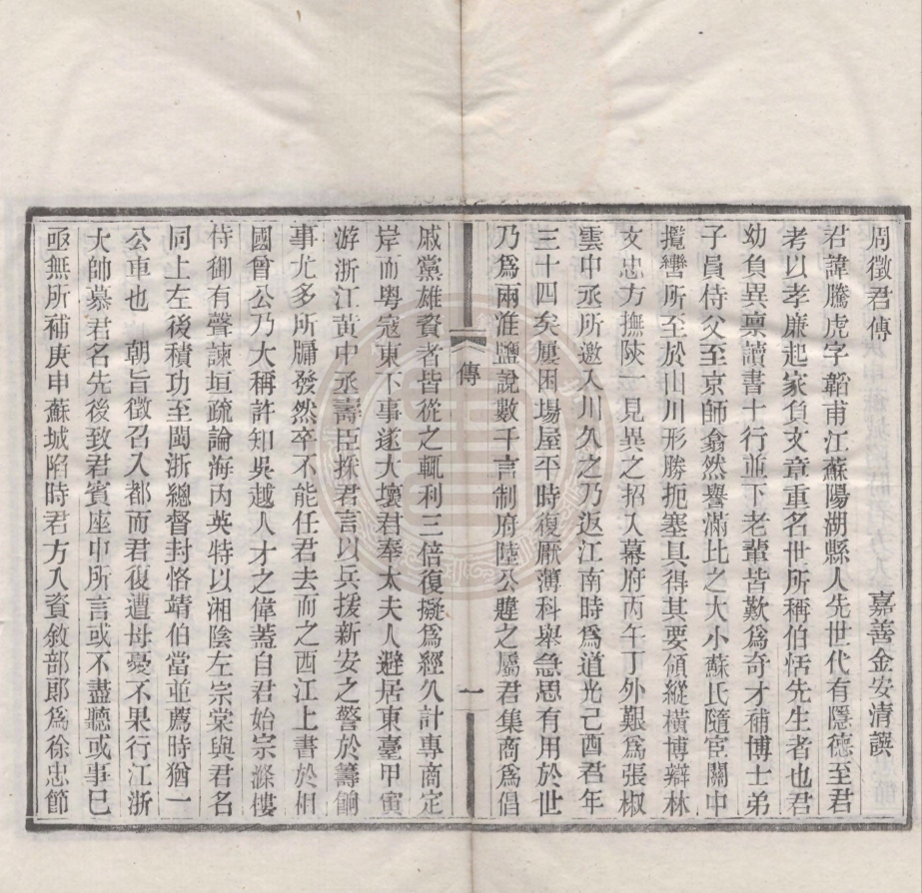 周徵君傳
嘉善金安清譔
君諱騰虎字韜甫江蘇陽湖縣人先世代有隱德至君
考以孝廉起家負文章重名世所稱伯恬先生者也君
幼負異禀讀書十行並下老輩皆歎爲奇才補博士弟
子員侍父至京師翕然譽滿比之大小蘇氏隨宦關中
攬轡所至於山川形勝扼塞具得其要領縱橫博辯林
文忠方撫陝一見異之招入幕府丙午丁外艱爲張椒
雲中丞所邀入川久之乃返江南時爲道光己酉君年
三十四矣屢困場屋平時復厭薄科舉急思有用於世
乃爲兩淮鹽說數千言制府陸公韙之屬君集商爲倡
傳
一
戚黨雄資者皆從之輒利三倍復擬爲經久計專商定
岸而粵寇東下事遂大壞君奉太夫人避居東臺甲寅
游浙江黃中丞壽臣採君言以兵援新安之警於籌餉
事尤多所牖發然卒不能任君去而之西江上書於相
國曾公乃大稱許知吳越人才之偉蓋自君始宗滌樓
侍御有聲諫垣疏論海內英特以湘陰左宗棠與君名
同上左後積功至閩浙總督封恪靖伯當並薦時猶一
公車也　朝旨徵召入都而君復遭母憂不果行江浙
大帥慕君名先後致君賓座中所言或不盡聽或事已
亟無所補庚申蘇城陷時君方入資敘部郞爲徐忠節